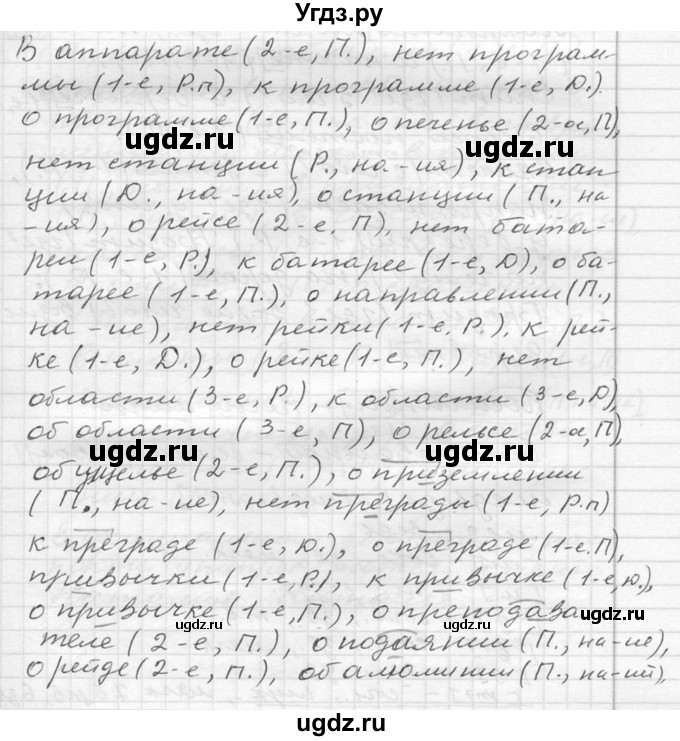 Угдз.ру
В аппарате (2-е, П.), нет програм-
мы (1-е, Р.п), к программе (1-е, Д.).
о программе (1-е, П.), о печенье (2-а, П),
угдз.ру угдз.ру
нет станции (Р., на -ия), к стан-
ции (Д., на -ия), о станции (П., на
-ия), о рейсе (2-е, П), нет бата-
реи (1-е, Р.), к батарее (1-е, Д), о ба-
тарее (1-е, П.), о направлении (П.,
на -ие), нет рейки (1-е, Р.), к рей-
ке (1-е, Д.), о рейке (1-е, П.), нет
области (3-е, Р.), к области (3-е, Д),
об области (3-е, П), о рельсе (2-а, П),
угдз.ру угдз.ру
об ущелье (2-е, П.), о приземлении
(П., на -ие), нет преграды (1-е, Р.п)
к преграде (1-е, Д.), о преграде (1-е, П),
привычки (1-е, Р.), к привычке (1-е, Д.),
о привычке (1-е, П.), о преподава
угдз.ру угдз.ру
теле (2-е, П.), о подаянии (П., на -ие),
о рейде (2-е, П.), об алюминии (П., на -ий),
угдз.ру